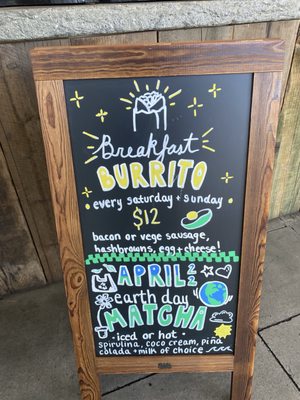 Breakfast
BURRITO
every saturday + sunday
$12
bacon or vege sausage,
hashbrowns, egg + cheese!
APRIL 22
earth day
MATCHA
- iced or hot -
spirulina, coco cream, piña
colada + milk of choice